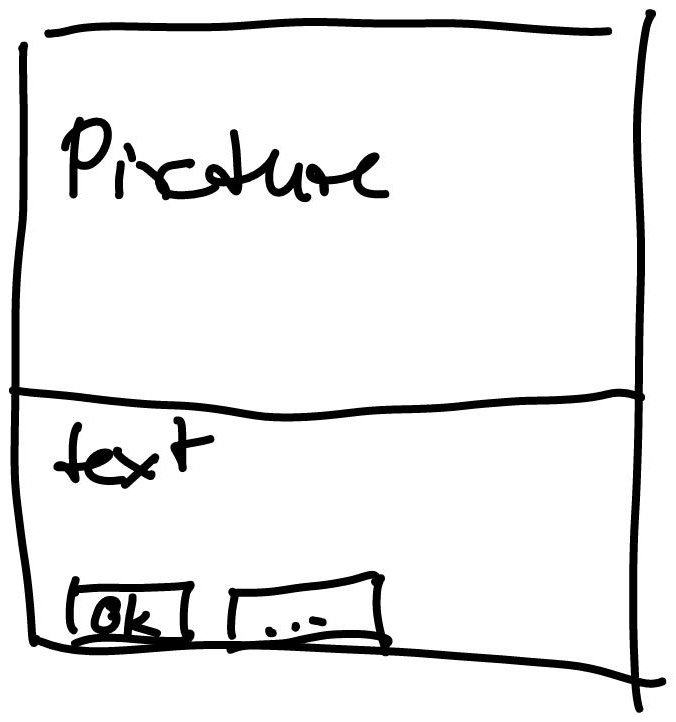 Picature
text
Ok ...